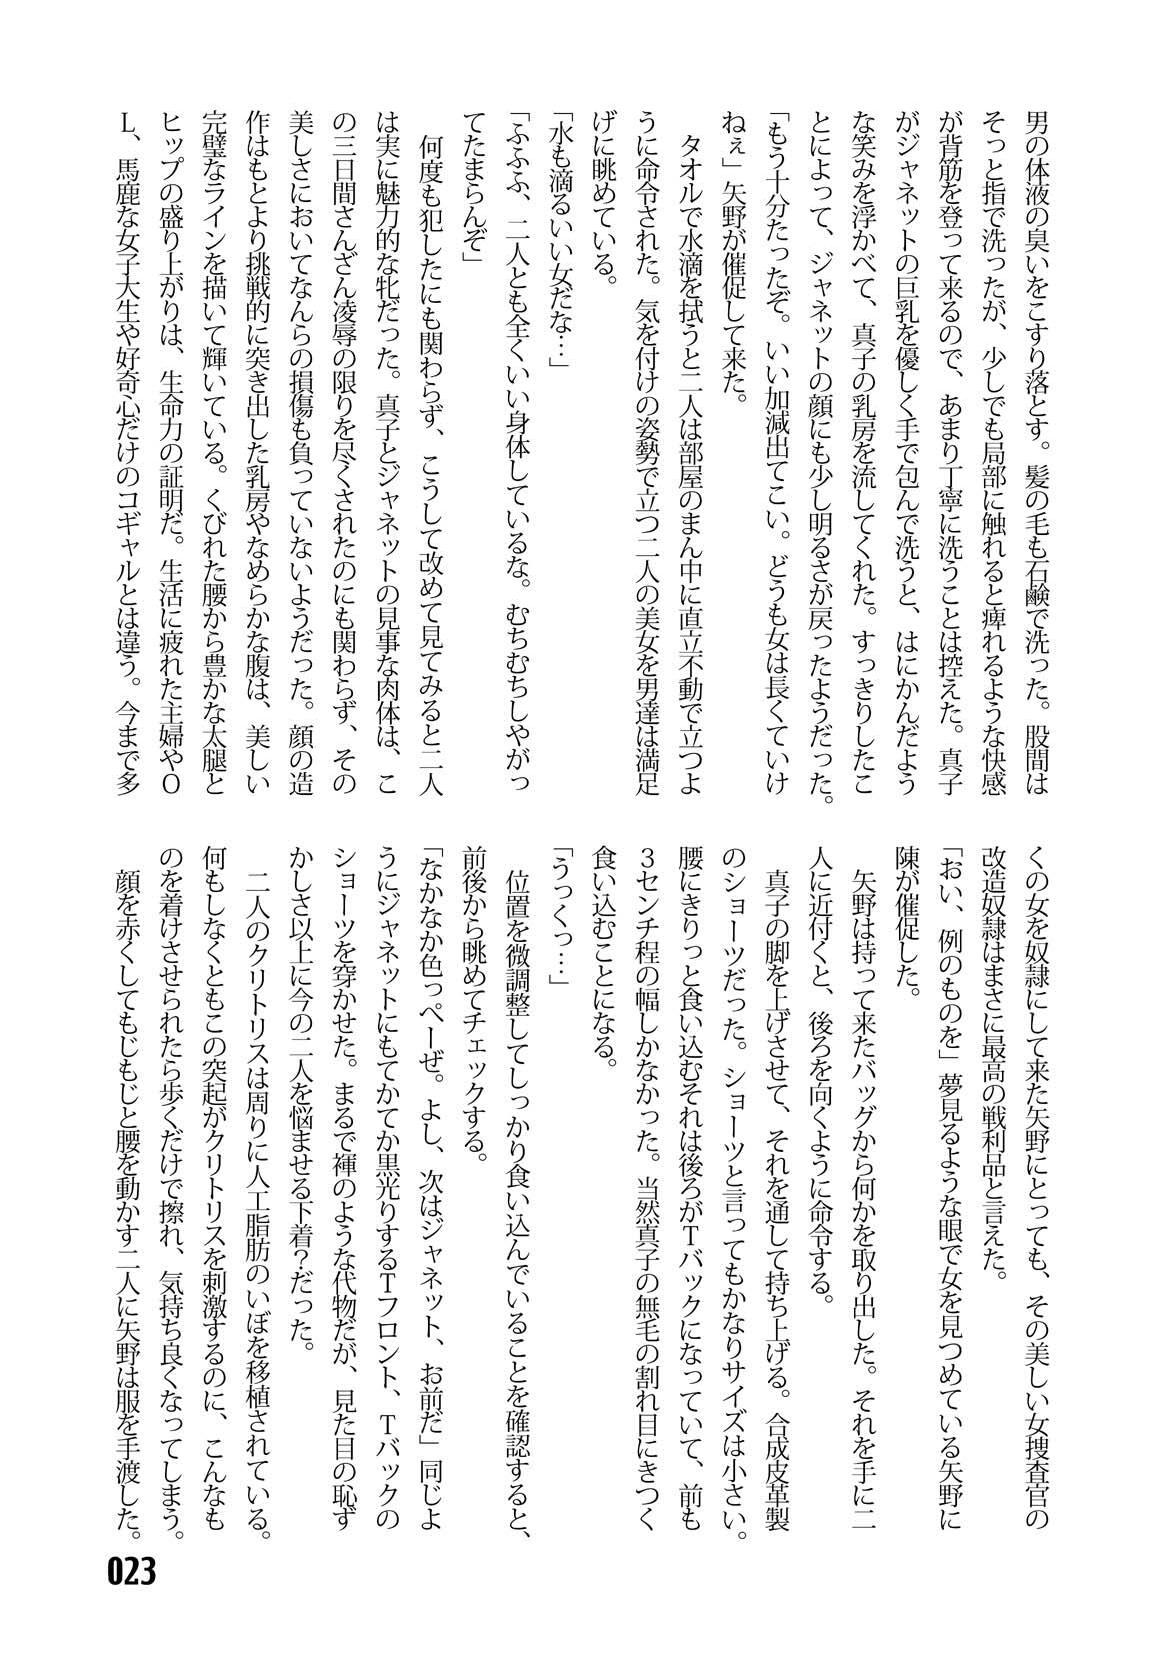 男の体液の臭いをこすり落とす。髪の毛も石鹸で洗った。股間は
そっと指で洗ったが、少しでも局部に触れると痺れるような快感
が背筋を登って来るので、あまり丁寧に洗うことは控えた。真子
がジャネットの巨乳を優しく手で包んで洗うと、はにかんだよう
な笑みを浮かべて、真子の乳房を流してくれた。すっきりしたこ
とによって、ジャネットの顔にも少し明るさが戻ったようだった。
「もう十分たったぞ。いい加減出てこい。どうも女は長くていけ
ねぇ」矢野が催促して来た。
　タオルで水滴を拭うと二人は部屋のまん中に直立不動で立つよ
うに命令された。気を付けの姿勢で立つ二人の美女を男達は満足
げに眺めている。
「水も滴るいい女だな…」
「ふふふ、二人とも全くいい身体しているな。むちむちしやがっ
てたまらんぞ」
　何度も犯したにも関わらず、こうして改めて見てみると二人
は実に魅力的な牝だった。真子とジャネットの見事な肉体は、こ
の三日間さんざん凌辱の限りを尽くされたのにも関わらず、その
美しさにおいてなんらの損傷も負っていないようだった。顔の造
作はもとより挑戦的に突き出した乳房やなめらかな腹は、美しい
完璧なラインを描いて輝いている。くびれた腰から豊かな太腿と
ヒップの盛り上がりは、生命力の証明だ。生活に疲れた主婦やＯ
Ｌ、馬鹿な女子大生や好奇心だけのコギャルとは違う。今まで多
くの女を奴隷にして来た矢野にとっても、その美しい女捜査官の
改造奴隷はまさに最高の戦利品と言えた。
「おい、例のものを」夢見るような眼で女を見つめている矢野に
陳が催促した。
　矢野は持って来たバッグから何かを取り出した。それを手に二
人に近付くと、後ろを向くように命令する。
　真子の脚を上げさせて、それを通して持ち上げる。合成皮革製
のショーツだった。ショーツと言ってもかなりサイズは小さい。
腰にきりっと食い込むそれは後ろがＴバックになっていて、前も
３センチ程の幅しかなかった。当然真子の無毛の割れ目にきつく
食い込むことになる。
「うっくっ…」
　位置を微調整してしっかり食い込んでいることを確認すると、
前後から眺めてチェックする。
「なかなか色っぺーぜ。よし、次はジャネット、お前だ」同じよ
うにジャネットにもてかてか黒光りするＴフロント、Ｔバックの
ショーツを穿かせた。まるで褌のような代物だが、見た目の恥ず
かしさ以上に今の二人を悩ませる下着？だった。
　二人のクリトリスは周りに人工脂肪のいぼを移植されている。
何もしなくともこの突起がクリトリスを刺激するのに、こんなも
のを着けさせられたら歩くだけで擦れ、気持ち良くなってしまう。
　顔を赤くしてもじもじと腰を動かす二人に矢野は服を手渡した。
023